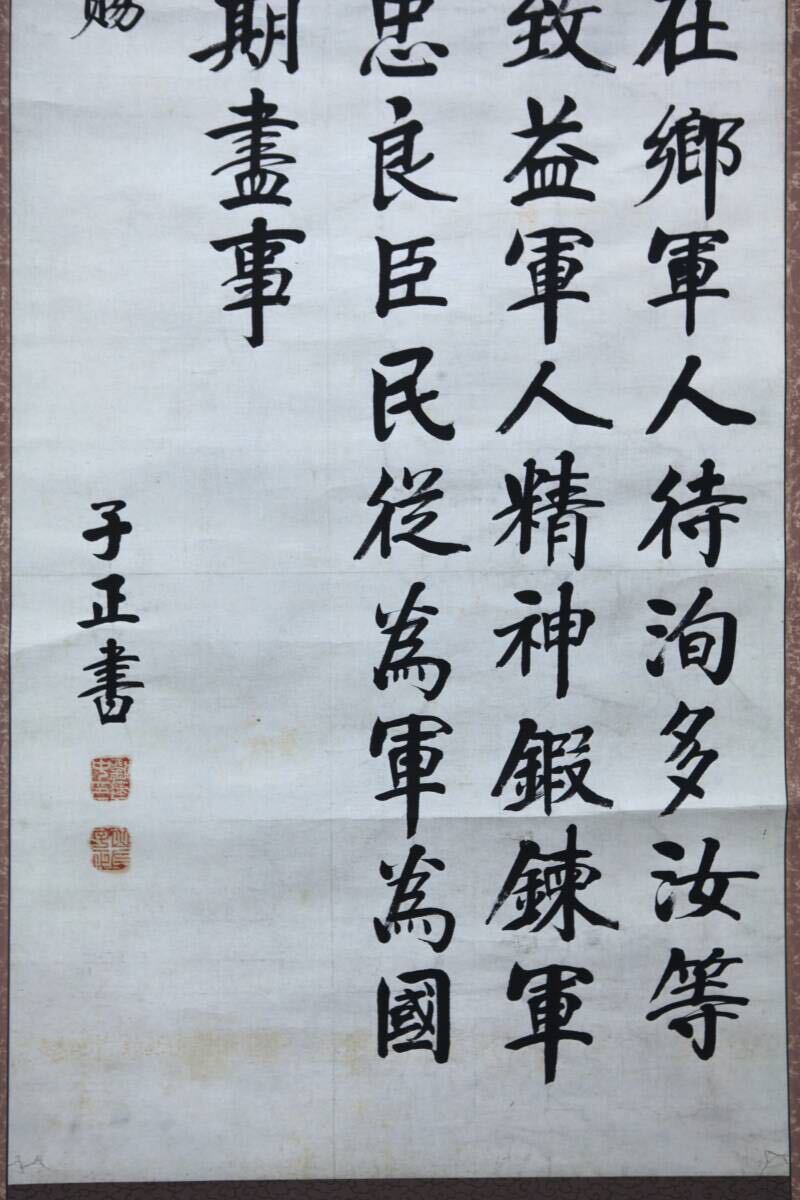 在鄉軍人待洵多汝等
致益軍人精神鍛鍊軍
忠良臣民從為軍為國
期盡事
賜
子正書